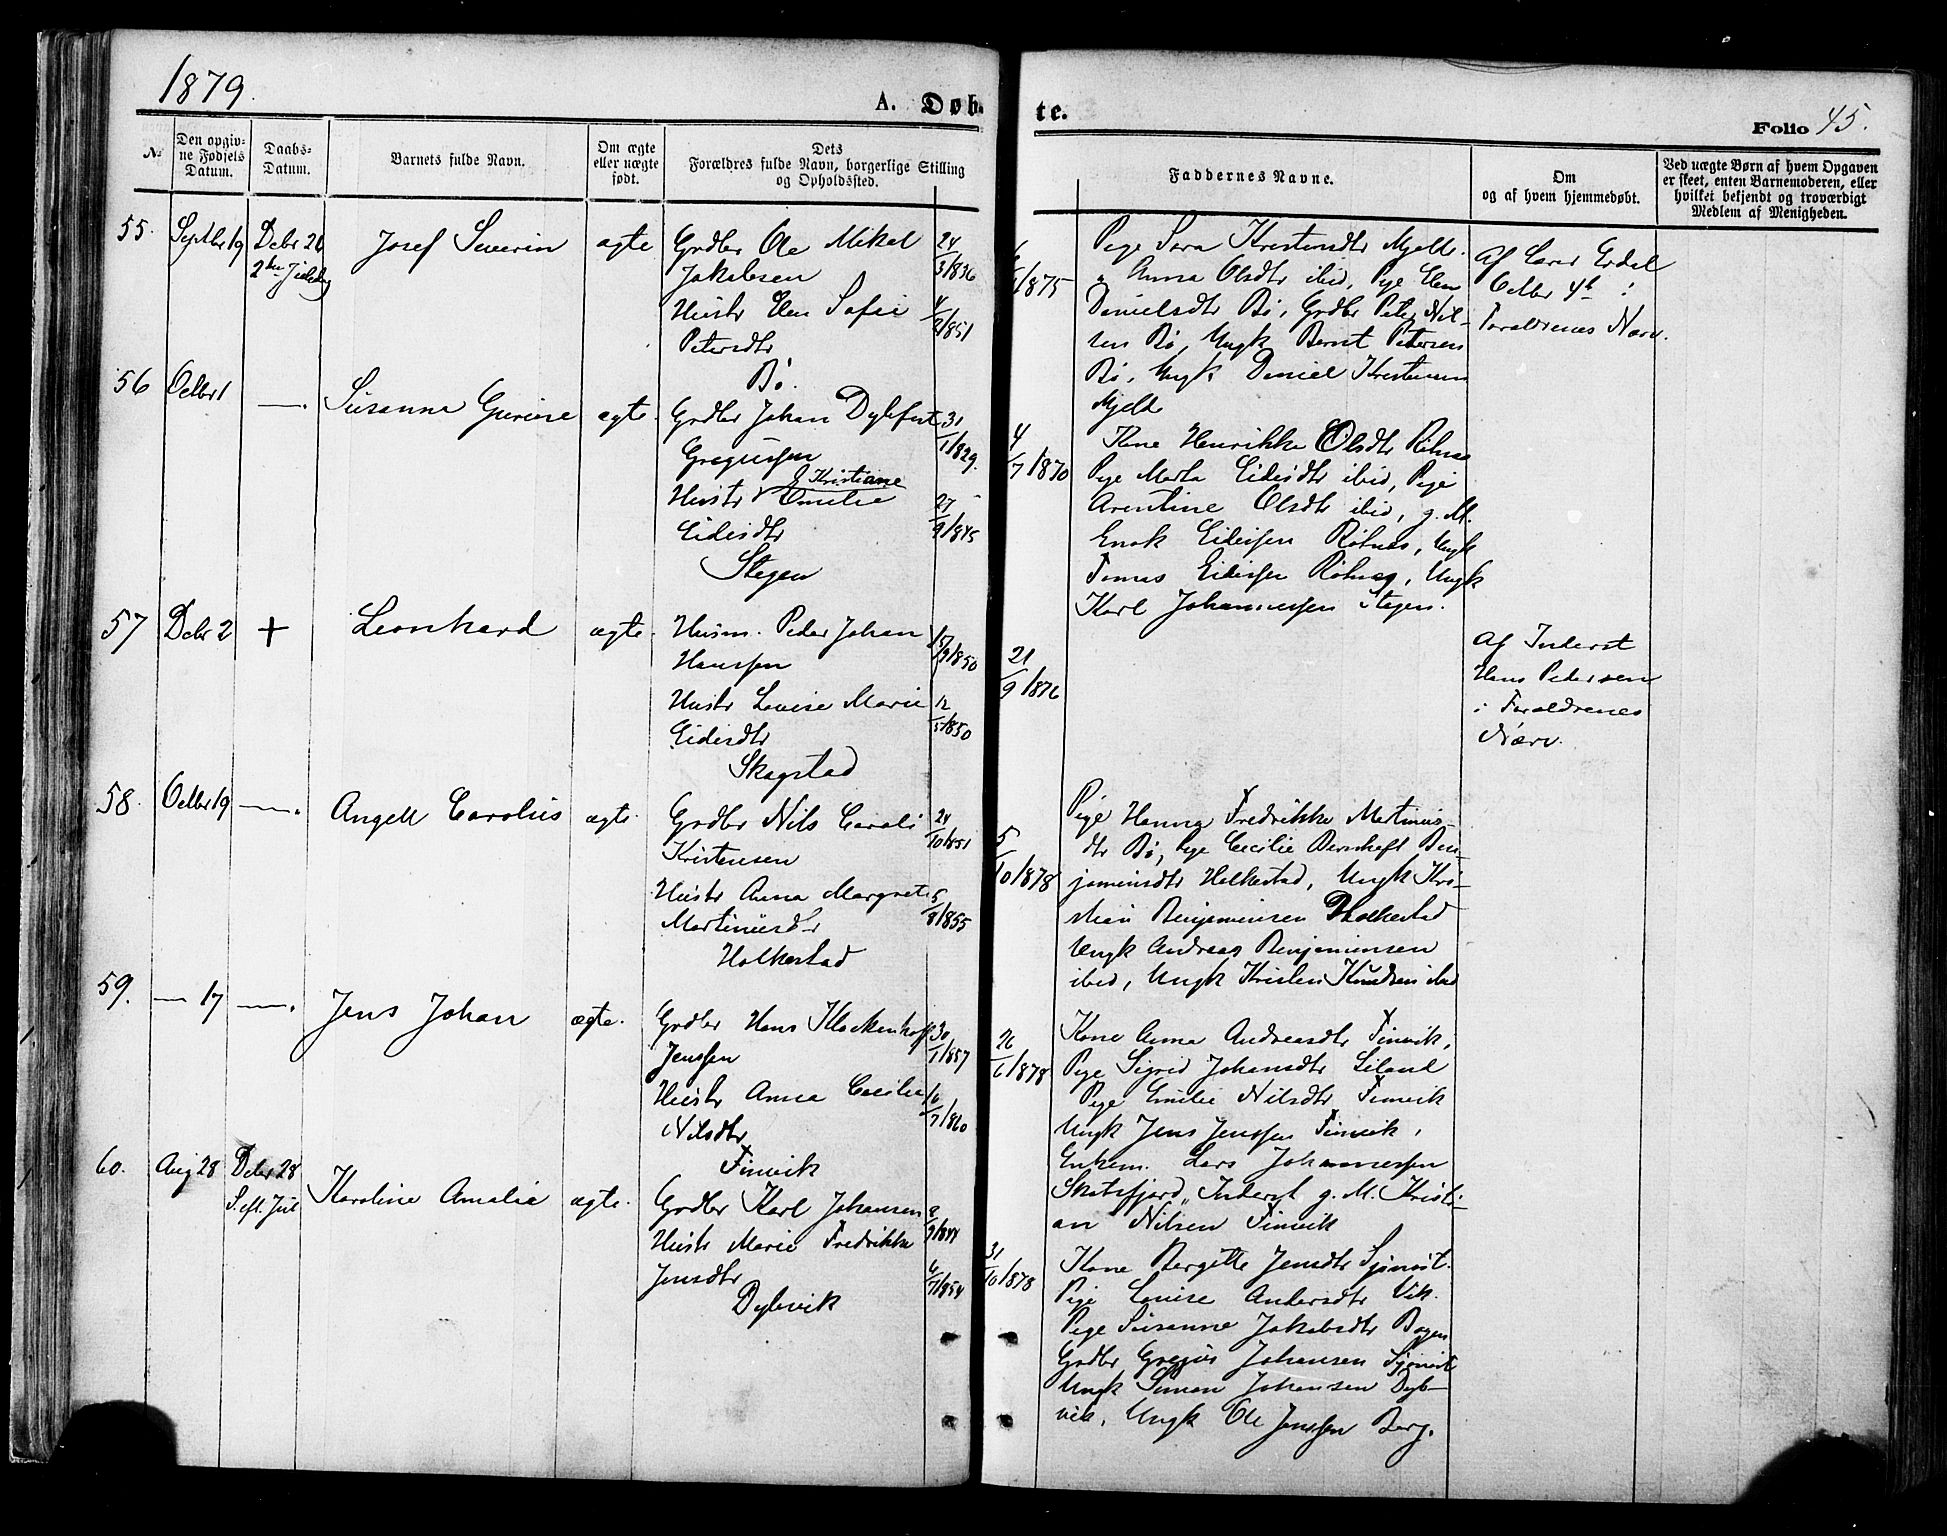 1879.
A. Døb-
te.
Folio 45.
No
Den opgiv-
ne Fødsels
Datum.
Daabs-
Datum.
Barnets fulde Navn.
Om ægte
eller uægte
født.
Dets
Forældres fulde Navn, borgerlige Stilling
og Opholdssted.
Faddernes Navne.
Om
og af hvem hjemmedøbt.
Ved uægte Børn af hvem Opgaven
er skeet, enten Barnemoderen, eller
hvilket bekjendt og troværdigt
Medlem af Menigheden.
55.
Septbr 19
Debr 26
2den Juledag
Josef Severin
ægte
Grdbr Ole Mikal
Jakobsen
24/3/1836
Hustr Elen Sofie
Petersdtr
4/2/1851
Bø.
/1875
Pige Sara Kristensdtr Mjelde.
" Anna Olsdtr ibid, Pige Elen
Danielsdtr Bø, Grdbr Peter Nil-
sen Bø, Ungk Bernt Petersen
Bø, Ungk Daniel Kristensen
Mjelde
Af Lars Erdal
Octbr 4de i
Forældrenes Nærv.
56
Octbr 1
—.
Susanna Gurine
ægte.
Grdbr Johan Dybfest
Gregussen
31/1/1829.
Kristiane
Hustr Emelie
Eidisdtr
27/9/1845
Stegen
4/7/1870
Kone Henrikke Olsdtr Röhnes
Pige Marta Eidisdtr ibid, Pige
Arentine Olsdtr ibid, g. M.
Enok Eidissen Röhnes, Ungk
Tomas Eidissen Röhnes, Ungk
Karl Johannessen Stegen.
57
Debr 2
+
Leonhard
ægte.
Husm. Peder Johan
Hanssen
15/9/1850
Hustr Lovise Marie
Eidisdtr
12/5/1850
Skagstad
21/9/1876
Af Inderst
Hans Pedersen
i Forældrenes
Nærv.
58.
Octbr 19
—.
Angell Carolius
ægte.
Grdbr Nils Caroli
Kristensen
24/10/1851
Hustr Anna Margrete
Martinusdtr
5/8/1855
Holkestad
5/10/1878
Pige Hanna Fredrikke Martinus-
dtr Bø, Pige Cecilie Bernhoft Ben-
jaminsdtr Holkestad, Ungk Kri-
stian Benjaminsen Holkestad
Ungk Andreas Benjaminsen
ibid, Ungk Kristen Knudsen ibid
59.
— 17
—.
Jens Johan
ægte.
Grdbr Hans Klockenhoff
Jenssen
30/1/1857
Hustr Anna Cecilie
Nilsdtr
16/7/1860
Finvik
26/6/1878
Kone Anna Andreasdtr Finvik,
Pige Sigrid Johansdtr Leland
Pige Emilie Nilsdtr Finvik
Ungk Jens Jenssen Finvik,
Enkem. Lars Johannessen
Skotsfjord, Inderst g. M. Kristi-
an Nilsen Finvik
60.
Aug 28
Debr 28
S. eft. Jul
Karoline Amalie
ægte.
Grdbr Karl Johansen
8/9/1844
Hustr Marie Fredrikke
Jensdtr
6/7/1854
Dybvik
31/10/1878
Kone Bergitte Jensdtr
Pige Lovise Andersdtr Vik.
Pige Susanne Jakobsdtr Bogen
Grdbr Gregus Johansen
Ungk Simon Johansen Dyb-
vik, Ungk Ole Jenssen Berg.